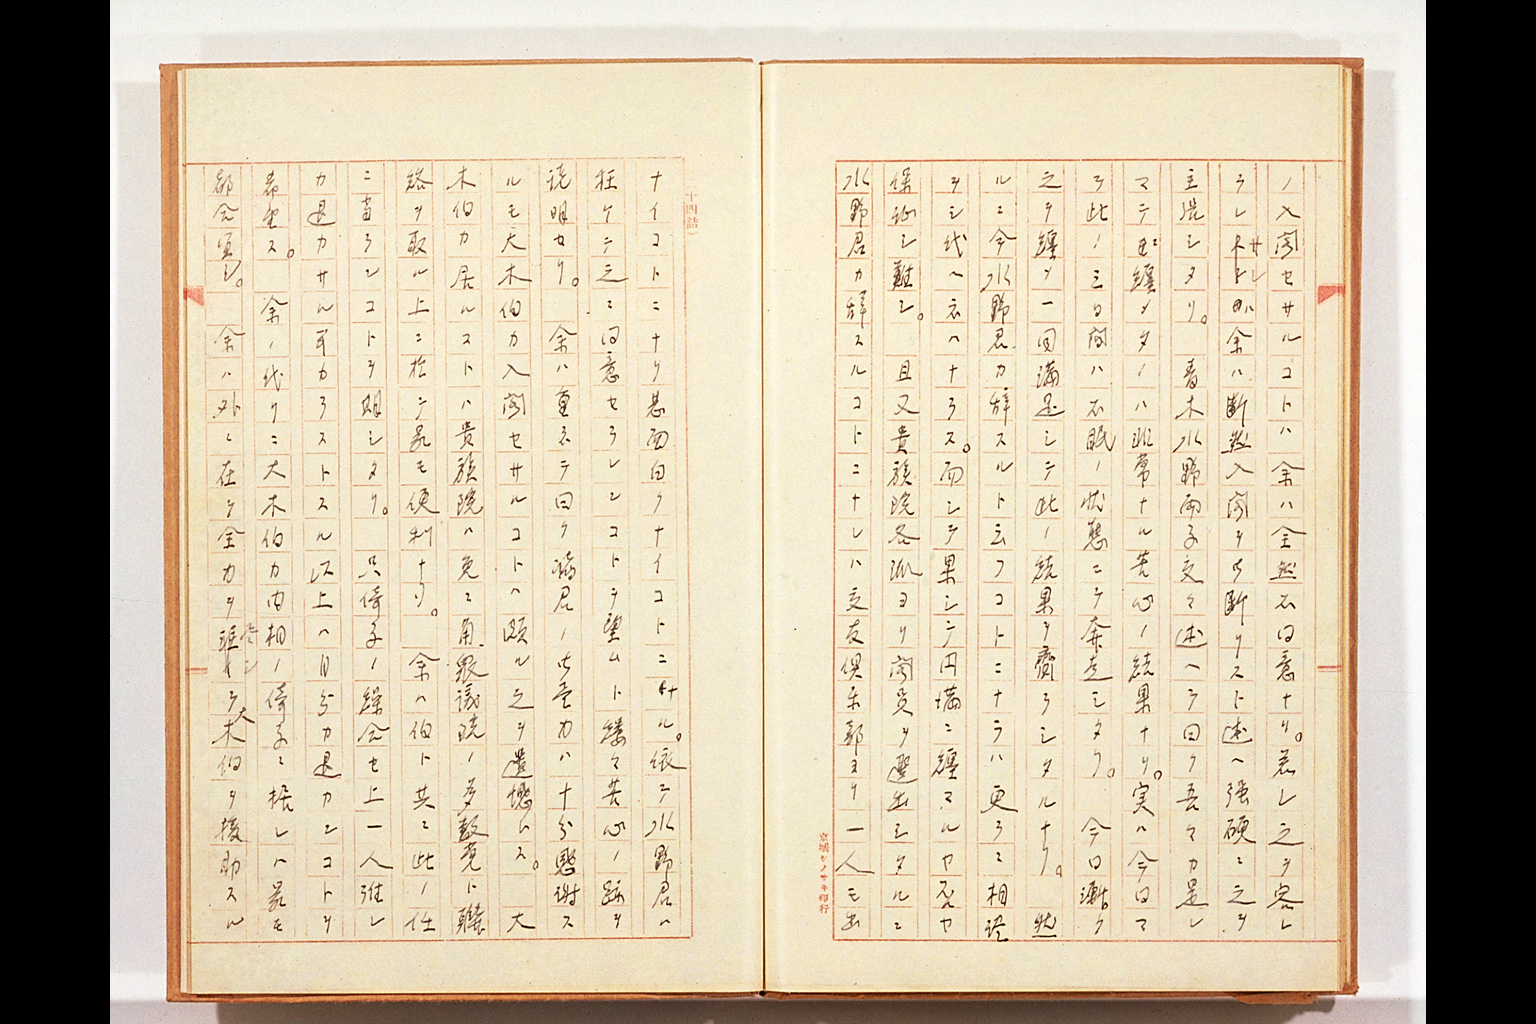 ノ入閣セサルコトハ余ハ全然不同意ナリ。若レ之ヲ容レ
ラレサレトキハ余ハ断然入閣ヲ謝断リスト述ヘ強硬ニ之ヲ
主張シタリ。 青木水野両子交々述ヘテ曰ク吾々カ是レ
マテニ纏メタノハ非常ナル苦心ノ結果ナリ。実ハ今日マ
テ此ノ三日間ハ不眠ノ状態ニテ奔走シタリ。 今日漸ク
之ヲ纏メ一同満足シテ此ノ結果ヲ齎ラシタルナリ。 然
ルニ今水野君カ辞スルト云フコトニナラハ更ラニ相談
ヲシ代ヘネハナラス。而シテ果シテ円満ニ纏マルヤ否ヤ
保証シ難シ。 且又貴族院各派ヨリ閣員ヲ選出シタルニ
水野君カ辞スルコトニナレハ交友倶楽部ヨリ一人モ出
ナイコトニナリ甚面白クナイコトニナル。依テ水野君ハ
枉ケテ之ニ同意セラレンコトヲ望ムト縷々苦心ノ跡ヲ
説明セリ。 余ハ重ネテ曰ク諸君ノ御尽力ハ十分感謝ス
ルモ大木伯カ入閣セサルコトハ頗ル之ヲ遺憾トス。 大
木伯カ居ルストハ貴族院ハ兎ニ角衆議院ノ多数党ト聯
絡ヲ取ル上ニ於テ最モ便利ナリ。 余ハ伯ト共ニ此ノ任
ニ当ランコトヲ期シタリ。 只倚子ノ繰合セ上一人誰レ
カ退カサル可カラストスル以上ハ自分カ退カンコトヲ
希望ス。 余ノ代リニ大木伯カ内相ノ倚子ニ据レハ最モ
都合宜シ。 余ハ外ニ在リ全力ヲ尽シテ大木伯ヲ援助スル
十四詰)
京城ヤノサキ印行